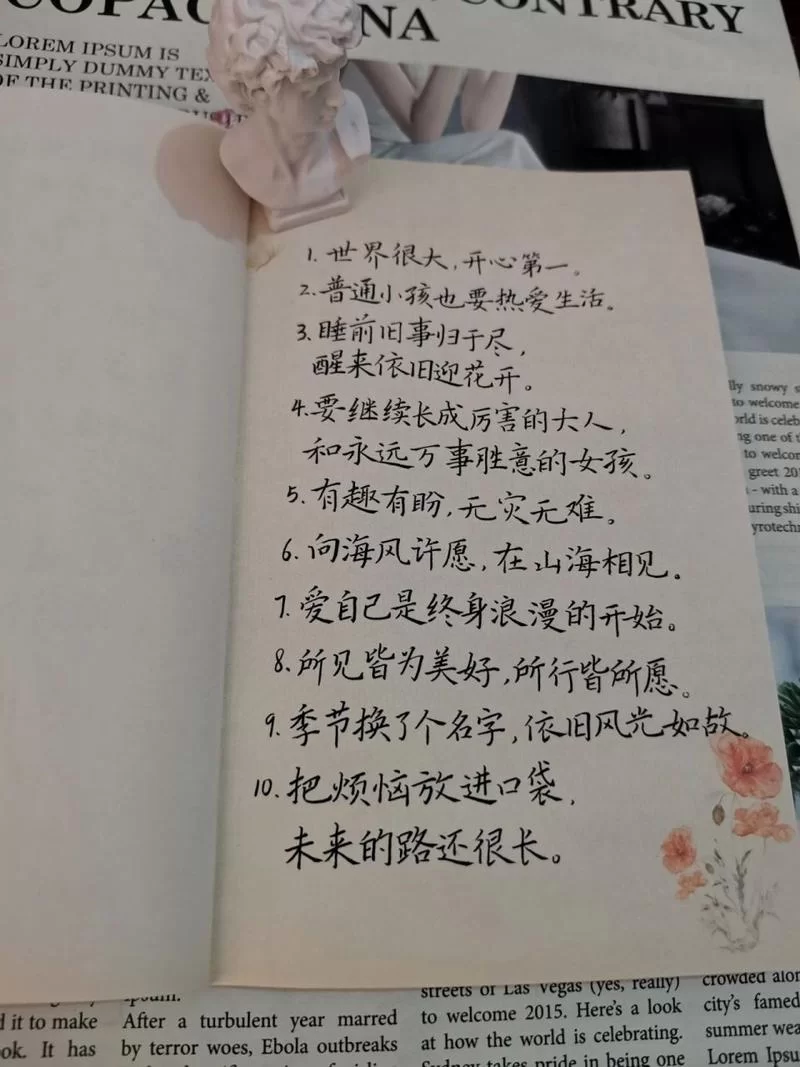 COPA
NA
CONTRARY
LOREM IPSUM IS
SIMPLY DUMMY TEX
OF THE PRINTING &
1. 世界很大,开心第一。
2. 普通小孩也要热爱生活。
3. 睡前旧事归于尽,
醒来依旧迎花开。
4. 要继续长成厉害的大人,
和永远万事胜意的女孩。
5. 有趣有盼,无灾无难。
6. 向海风许愿,在山海相见。
7. 爱自己是终身浪漫的开始。
8. 所见皆为美好,所行皆所愿。
9. 季节换了个名字,依旧风光如故。
10. 把烦恼放进口袋,
未来的路还很长。
lly snowy s
to welcome
orld is celeb
ng one of t
to welcom
greet 20
- with a
uring shi
yrotechn
d it to make
ok. It has
ipsum.
After a turbulent year marred
by terror woes, Ebola outbreaks
streets of Las Vegas (yes, really)
to welcome 2015. Here's a look
at how the world is celebrating.
Sydney takes pride in being one
crowded alon
city's famed
summer wea
Lorem Ipsu